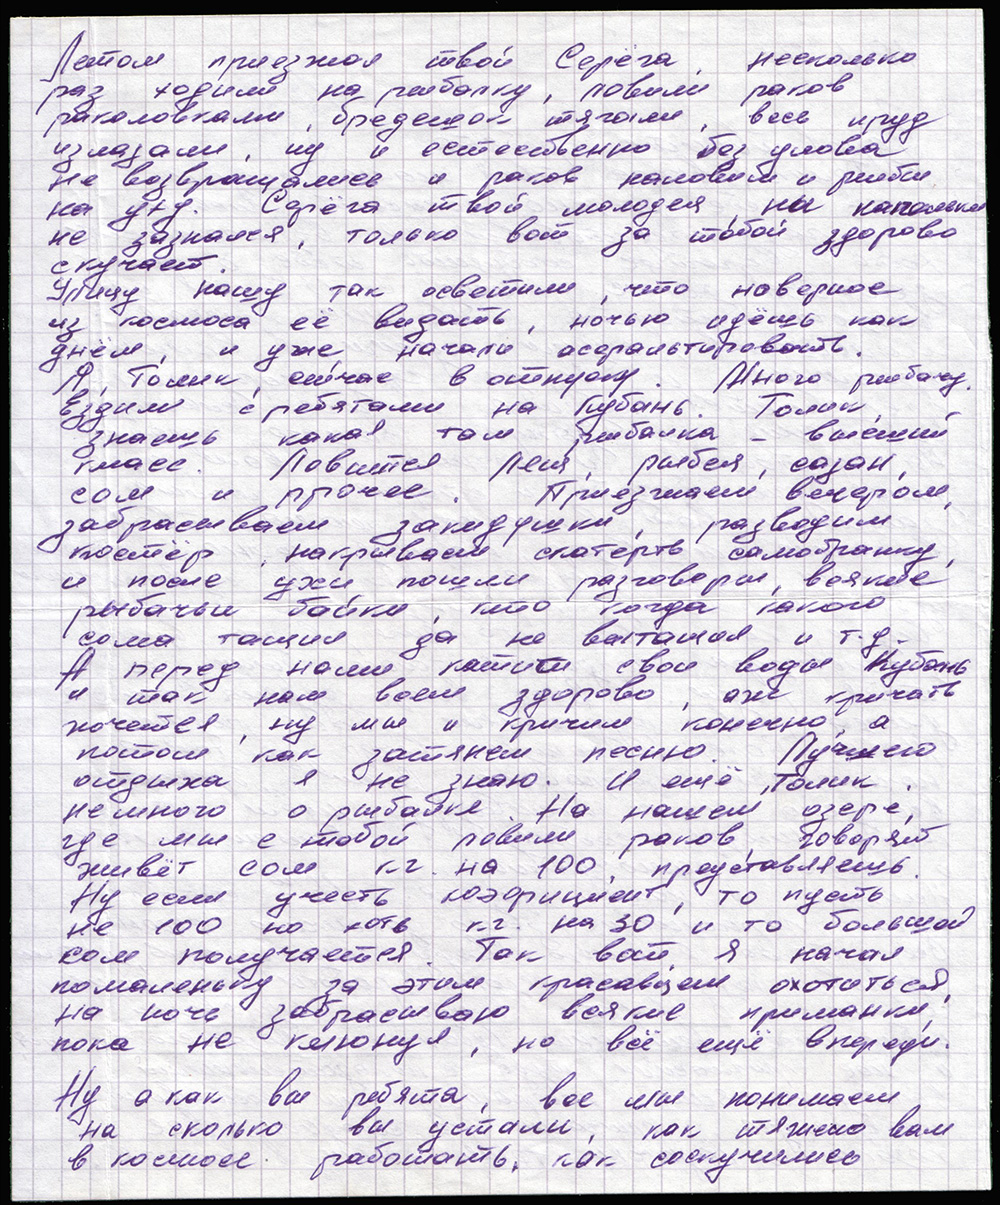 Летом приезжал твой Серёга, несколько
раз ходили на рыбалку, ловили раков
раколовками, бредешок тягали, весь пруд
излазали, ну и естественно без улова
не возвращались и раков наловим и рыбы
на уху. Серёга твой молодец, ни капельки
не зазнался, только вот за тобой здорово
скучает.
Улицу нашу так осветили, что наверное
из космоса её видать, ночью идёшь как
днём, и уже начали асфальтировать.
Я, Толик, сейчас в отпуску. Много рыбачу.
Ездили с ребятами на Кубань. Толик,
знаешь какая там рыбалка – высший
класс. Ловится лещ, рыбец, сазан,
сом и прочее. Приезжаем вечером,
забрасываем закидушки, разводим
костёр, накрываем скатерть самобранку,
и после ухи пошли разговоры, всякие
рыбачьи байки, кто когда какого
сома тащил да не вытащил и т.д.
А перед нами катит свои воды Кубань
и так нам всем здорово, аж кричать
хочется, ну мы и кричим конечно, а
потом как затянем песню. Лучшего
отдыха я не знаю. И ещё, Толик,
немного о рыбалке. На нашем озере,
где мы с тобой ловили раков, говорят
живёт сом кг. на 100, представляешь.
Ну если учесть коэфициент, то пусть
не 100 но хоть кг. на 30 и то большой
сом получается. Так вот я начал
помаленьку за этим красавцем охотиться,
на ночь забрасываю всякие приманки,
пока не клюнул, но всё ещё впереди.
Ну а как вы ребята, все мы понимаем
на сколько вы устали, как тяжело вам
в космосе работать, как соскучились